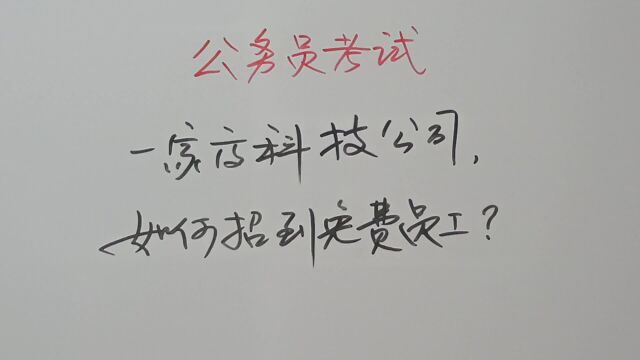 公务员考试
一家高科技公司,
如何招到免费员工?